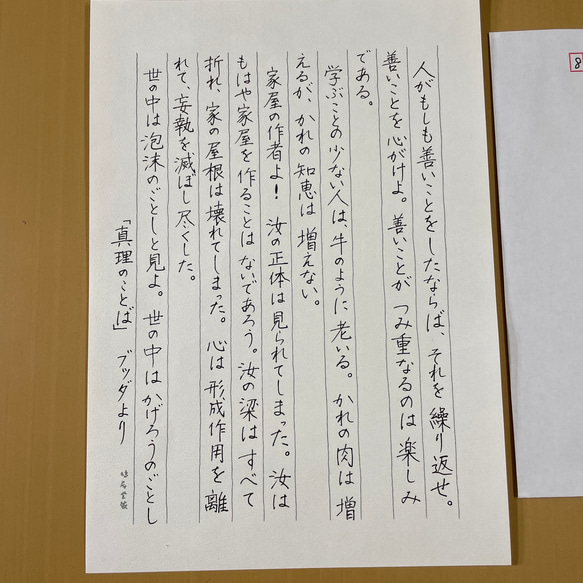 人がもしも善いことをしたならば、それを繰り返せ。
善いことを心がけよ。善いことがつみ重なるのは楽しみ
である。
学ぶことの少ない人は、牛のように老いる。かれの肉は増
えるが、かれの知恵は増えない。
家屋の作者よ！汝の正体は見られてしまった。汝は
もはや家屋を作ることはないであろう。汝の梁はすべて
折れ、家の屋根は壊れてしまった。心は形成作用を離
れて、妄執を滅ぼし尽くした。
世の中は泡沫のごとしと見よ。世の中はかげろうのごとし
「真理のことば」ブッダより
8